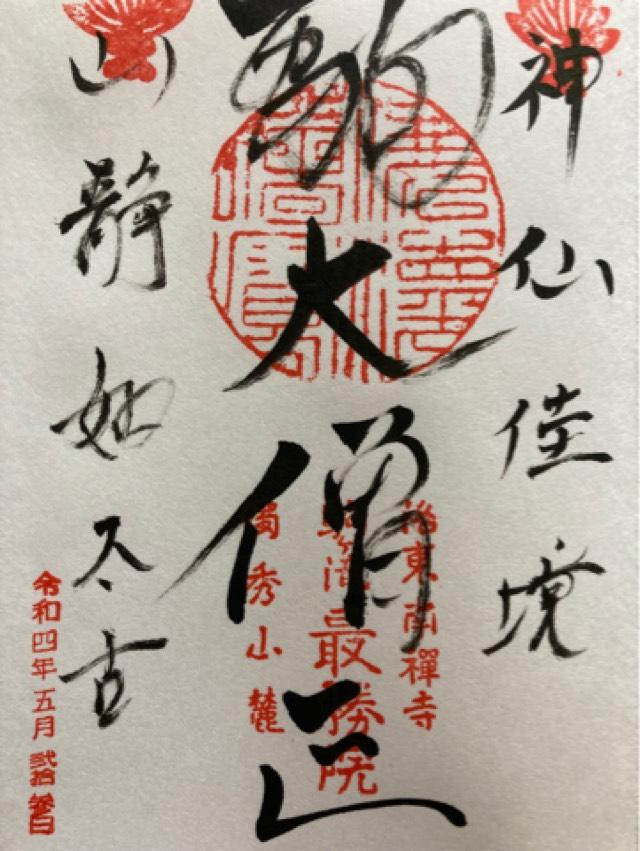 神仙佳境
駒大僧正
山静如太古
洛東南禪寺
駒ヶ瀧最勝院
獨秀山麓
令和四年五月弐拾参日